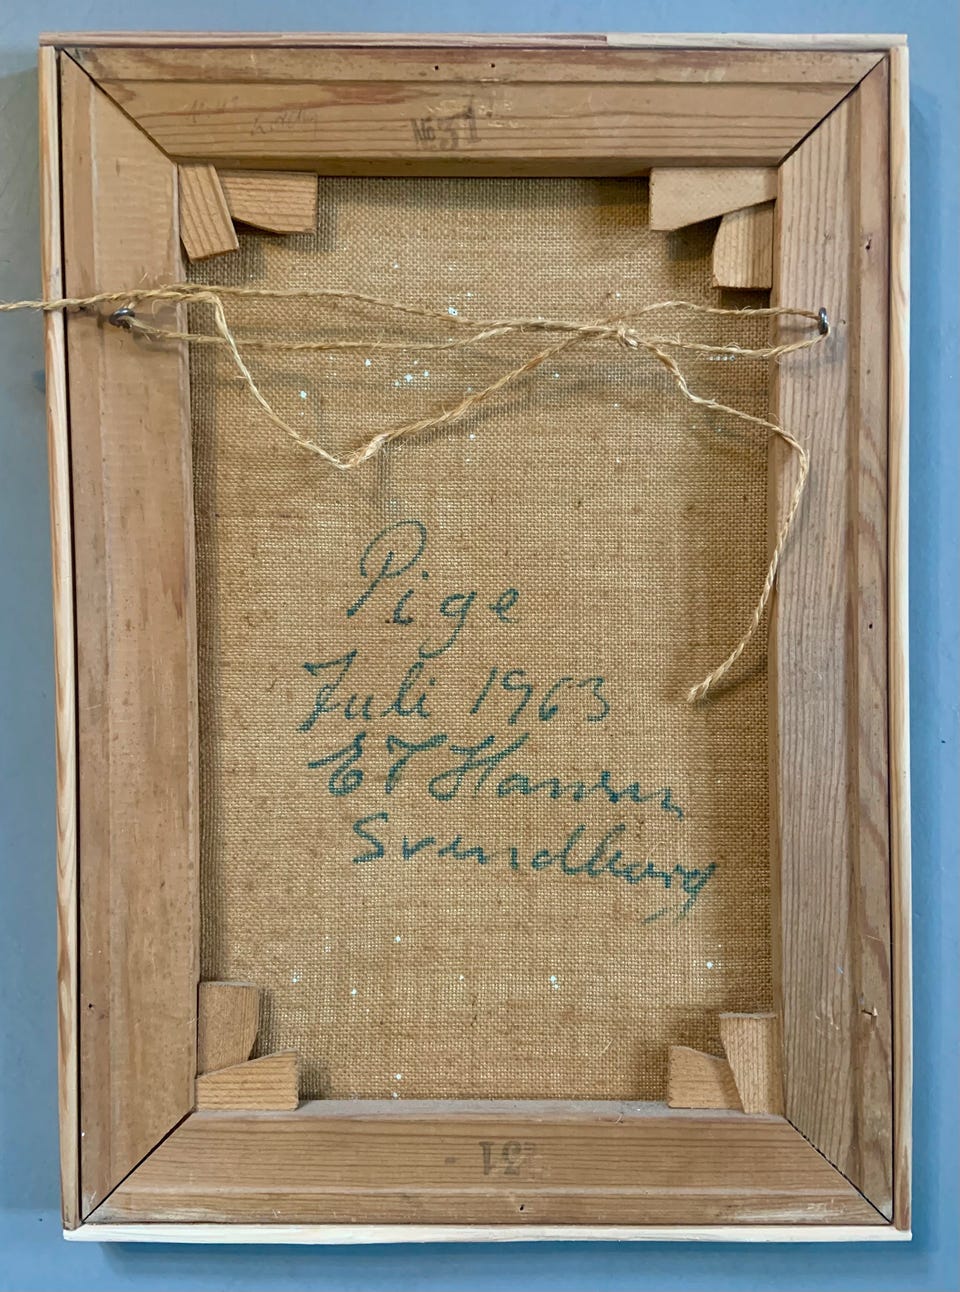 No 31
Pige
Juli 1963
E T Hansen
Svendborg